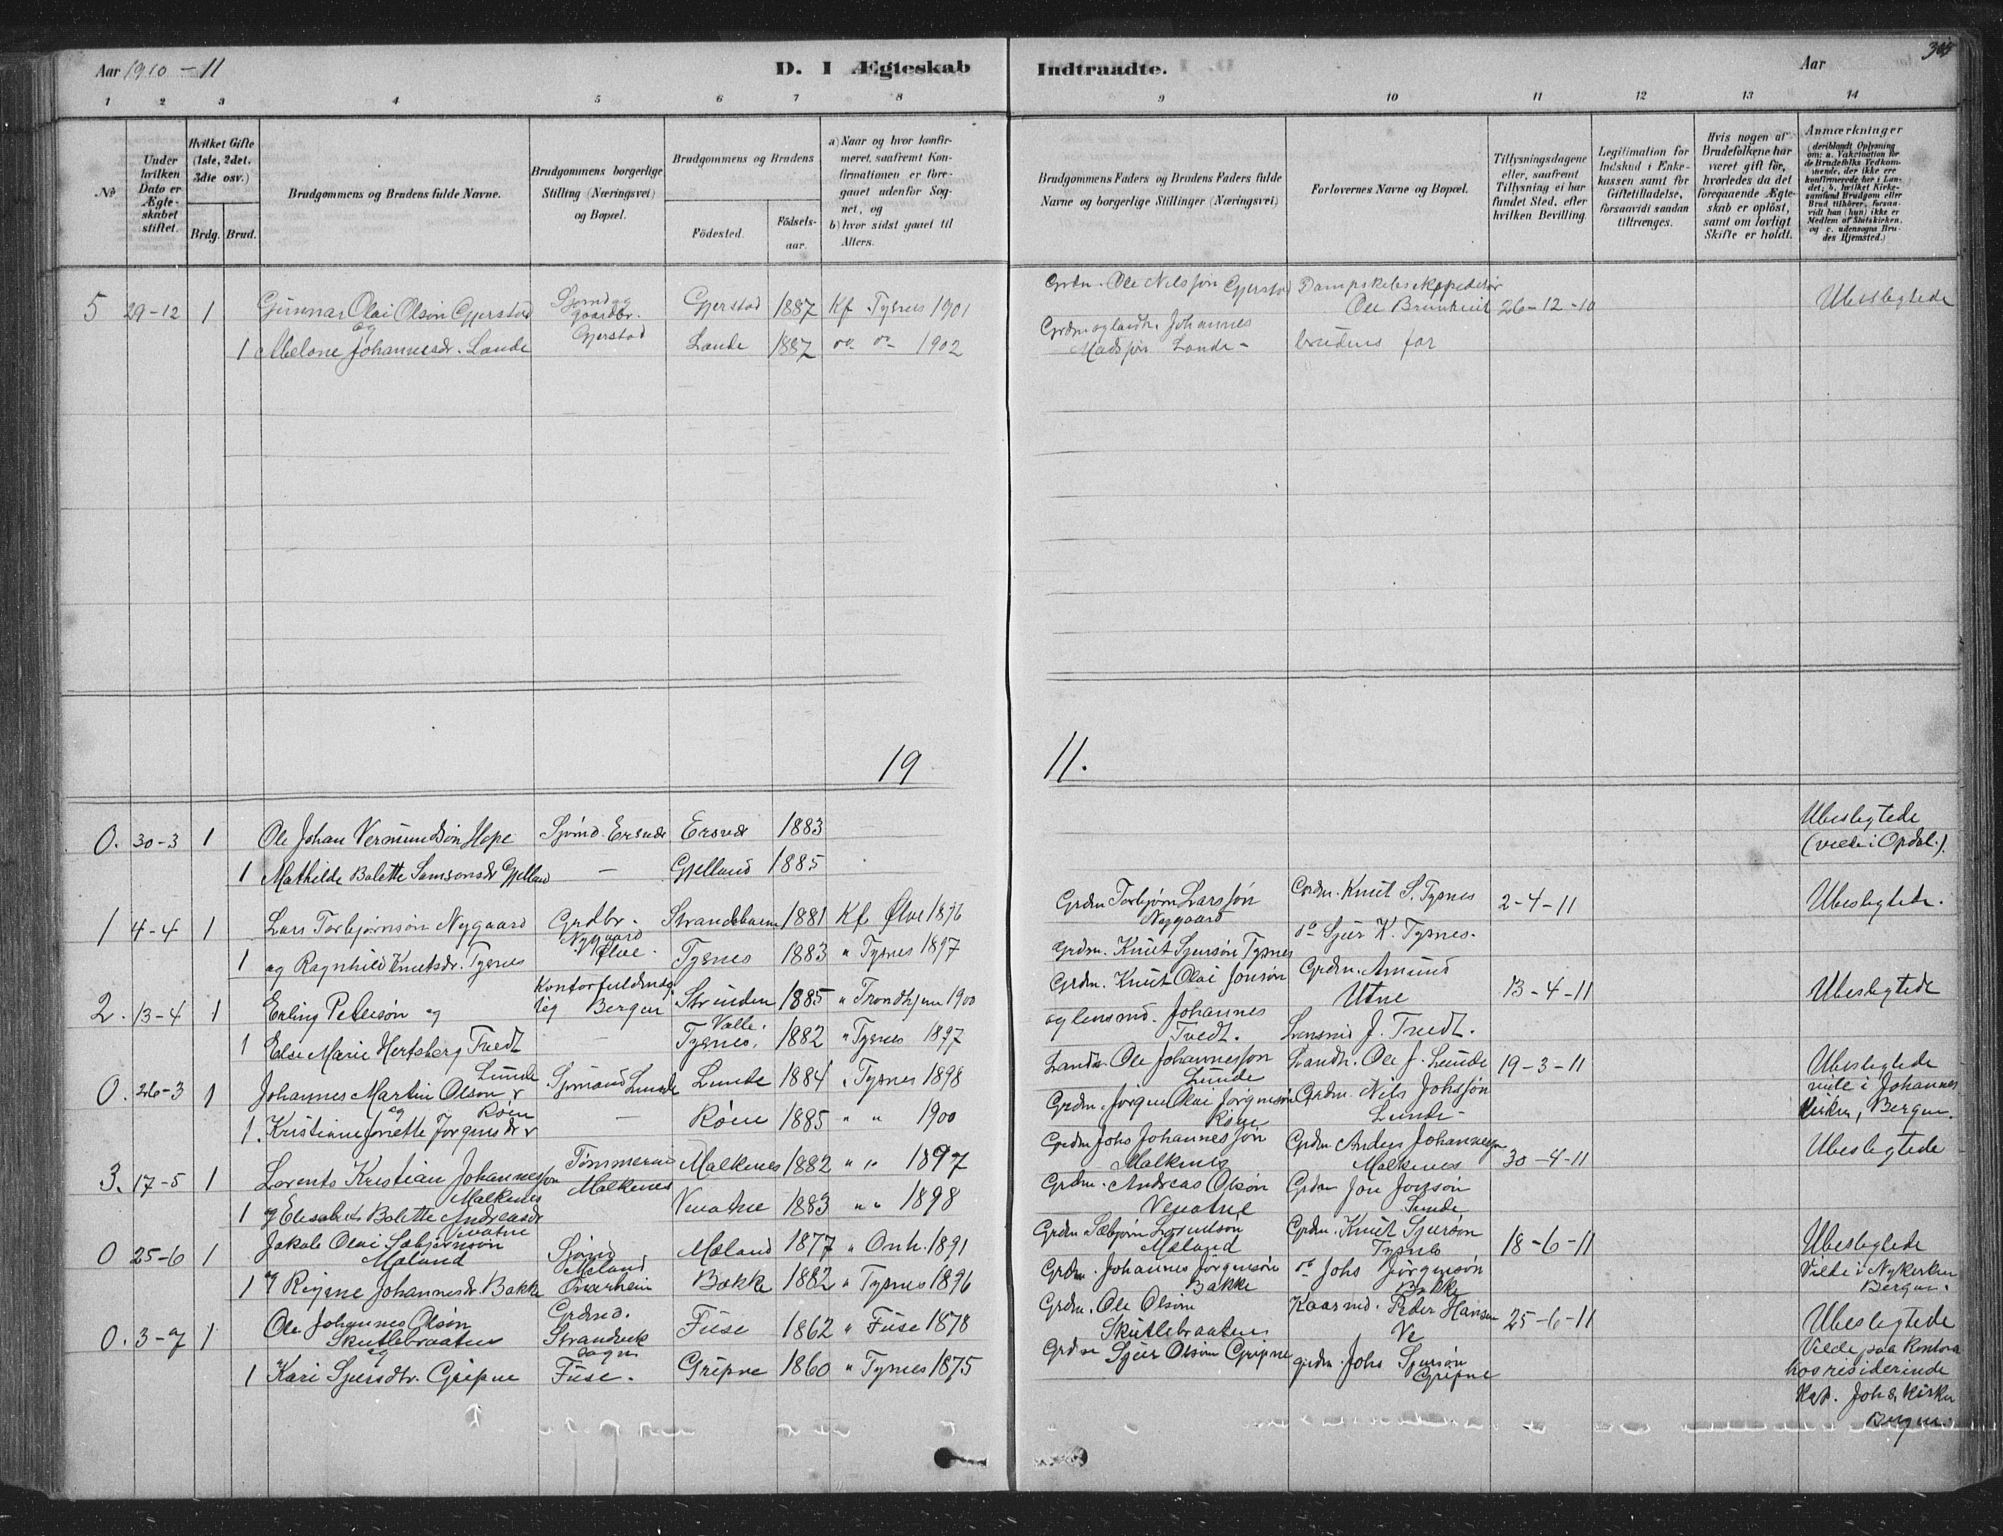 Aar 1910 - 11
D. I Ægteskab
Indtraadte.
Aar
1 2 3 4 5 6 7 8 9 10 11 12 13 14
No.
Under hvilken Dato er Ægteskabet stiftet.
Hvilket Gifte (1ste, 2det, 3die osv.)
Brdg. Brud.
Brudgommens og Brudens fulde Navne.
Brudgommens borgerlige Stilling (Næringsvei) og Bopæl.
Brudgommens og Brudens
Födested.
Födselsaar.
a) Naar og hvor konfirmeret, saafremt Konfirmationen er foregaaet udenfor Sognet, og
b) hvor sidst gaaet til Alters.
Brudgommens Faders og Brudens Faders fulde Navne og borgerlige Stillinger (Næringsvei)
Forlovernes Navne og Bopæl.
Tillysningsdagene eller, saafremt Tillysning ei har fundet Sted, efter hvilken Bevilling.
Legitimation for Indskud i Enkekassen samt for Giftetilladelse, forsaavidt saadan tiltrænges.
Hvis nogen af Brudefolkene har været gift för, hvorledes da det foregaaende Ægteskab er oplöst, samt om lovligt Skifte er holdt.
Anmærkninger
(deriblandt Oplysning om: a. Vakcination for de Brudefolks Vedkommende, der ikke ere konfirmerede her i Landet; b. hvilket Kirkesamfund Brudgom eller Brud tilhörer, forsaavidt han (hun) ikke er Medlem af Statskirken, og c. udensogns Brudes Hjemsted.)
5 29-12 1 Gunnar Olai Olsön Gjerstad Sjømd og gaardbr. Gjerstad Gjerstad 1887 Kf Tysnes 1901 Grdm. Ole Nilssön Gjerstad Dampskibsekspeditör Ole 26-12-10 Ubeslegtede
og
1 Abelone Johannesdr. Lande Lande 1887 do do 1902 Grdm og landh. Johannes Madssön Lande - brudens far
19 11.
0. 30-3 1 Ole Johan Vermundsön Hope Sjömd. Ersvde Ersvde 1883 Ubeslegtede (viede i Opdal.)
1 Mathilde Bolette Samsonsdr Gjelland - Gjelland 1885
1 4-4 1 Lars Torbjørnsön Nygaard Grdbr. Nygaard Ølve. Strandebarm 1881 Kf Ølve 1896 Grdm Torbjørn Larssön Nygaard Grdm. Knut S. Tysnes 2-4-11 Ubeslegtede.
1 og Ragnhild Knutsdr. Tysnes Tysnes 1883 " Tysnes 1897 Grdm. Knut Sjursön Tysnes do Sjur K. Tysnes.
2. 13-4 1 Erling Petersön og Kontorfuldmægtig Bergen Strinden 1885 " Trondhjem 1900 Grdm. Knut Olai Jonsön Grdm. Amund Utne 13-4-11 Ubeslegtede
1 Else Marie Hertsberg Tvedt - Valle. Tysnes. 1882 " Tysnes 1897 og lensmd. Johannes Tvedt. Lensmd J. Tvedt.
0. 26-3 1 Johannes Martin Olsön Lunde Sjömand Lunde Lunde 1884 " Tysnes 1898 Landh. Ole Johannessön Lunde Landh. Ole J. Lunde 19-3-11 Ubeslegtede viede i Johannes kirken, Bergen.
og
1. Kristiane Jonette Jørgensdr Röen - Röen 1885 " " 1900 Grdm. Jørgen Olai Jørgensön Röen Grdm. Nils Johssön Lunde -
3. 17-5 1 Lorents Kristian Johannessön Malkenes Tömmermd Malkenes Malkenes 1882 " " 1897 Grdm Johs Johannessön Malkenes Grdm Anders Johannessön Malkenes 30-4-11 Ubeslegtede
1 og Elisabet Bolette Andreasdr Vevatne Vevatne 1883 " " 1898 Grdm. Andreas Olsön Vevatne Grdm Jon Jonsön Lunde
0 25-6 1 Jakob Olai Sæbjørnsön Mæland Sjömd. Mæland Onarheim Mæland 1877 " Onh. 1891 Grdm Sæbjørn Mæland Grdm. Knut Sjursön Tysnes 18-6-11 Ubeslegtede Viede i Nykirken Bergen.
1 og Regine Johannesdr. Bakke Bakke 1882 " Tysnes 1896 Grdm. Johannes Jørgensön Bakke do Johs Jørgensön Bakke
0. 3-7 1 Ole Johannes Olsön Skutlebraaten Grdmd. Strandvik sogn Fuse. Fuse 1862 " Fuse 1878 Grdm. Ole Olsön Skutlebraaten Kaarmd. Peder Hansen Ve 25-6-11 Ubeslegtede Viede paa Kontoret hos residerende Kap. Johs. kirken Bergen.
og
1 Kari Sjursdtr. Gripne Gripne 1860 " Tysnes 1875 Grdm Sjur Olsön Gripne grdm. Johs Sjursön Gripne